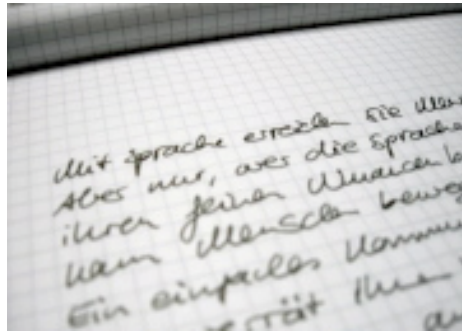 Mit sprache erreichen sie Men
Aber nur, wer die sprache
ihren feinen Nuancen b
kann Menschen beweg
Ein einfaches Kommu
tät Ihnen